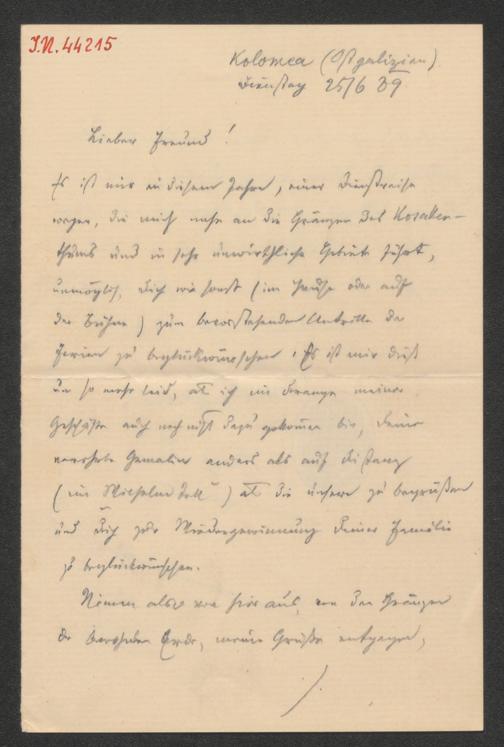 J.N. 44215
Kolomea (Ostgalizien).
Dienstag 25/6 89.
Lieber Freund!
Es ist mir in diesem Jahre, einer Dienstreise
wegen, die mich nahe an die Gränzen des Kosaken-
thums und in sehr unwirthliche Gebiete führt,
unmöglich, Dich wie sonst (im Hause oder auf
der Bühne) zum bevorstehenden Antritte der
Ferien zu beglückwünschen. Es ist mir dieß
um so mehr leid, als ich im Drange meiner
Geschäfte auch noch nicht dazu gekommen bin, Deine
verehrte Gemalin anders als auf Distanz
(im "Wilhelm Tell") als die unsere zu begrüßen
und Dich zur Wiedergewinnung Deiner Familie
zu beglückwünschen.
Nimm also von hier aus, von den Gränzen
der bewohnten Erde, meine Grüße entgegen,